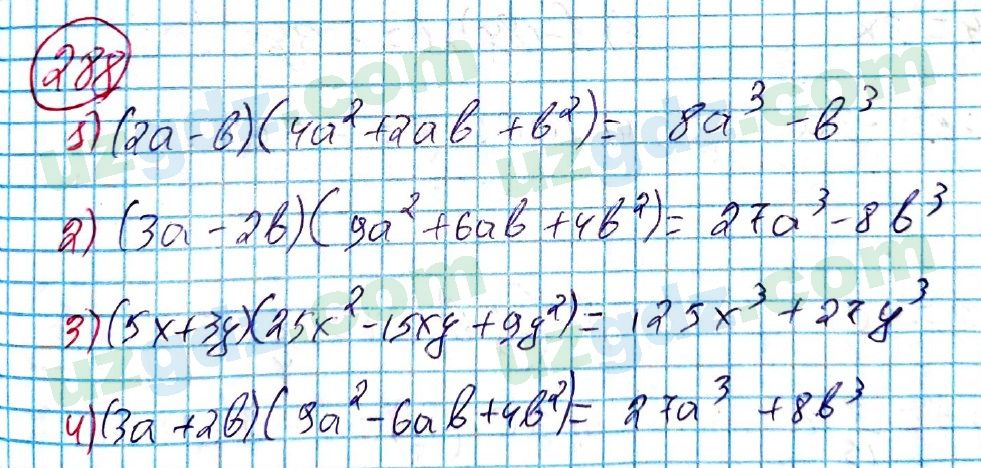 288
1) (2a - b)(4a² + 2ab + b²) = 8a³ - b³
2) (3a - 2b)(9a² + 6ab + 4b²) = 27a³ - 8b³
3) (5x + 3y)(25x² - 15xy + 9y²) = 125x³ + 27y³
4) (3a + 2b)(9a² - 6ab + 4b²) = 27a³ + 8b³
uzgdz.com
uzgdz.com
uzgdz.com
uzgdz.com